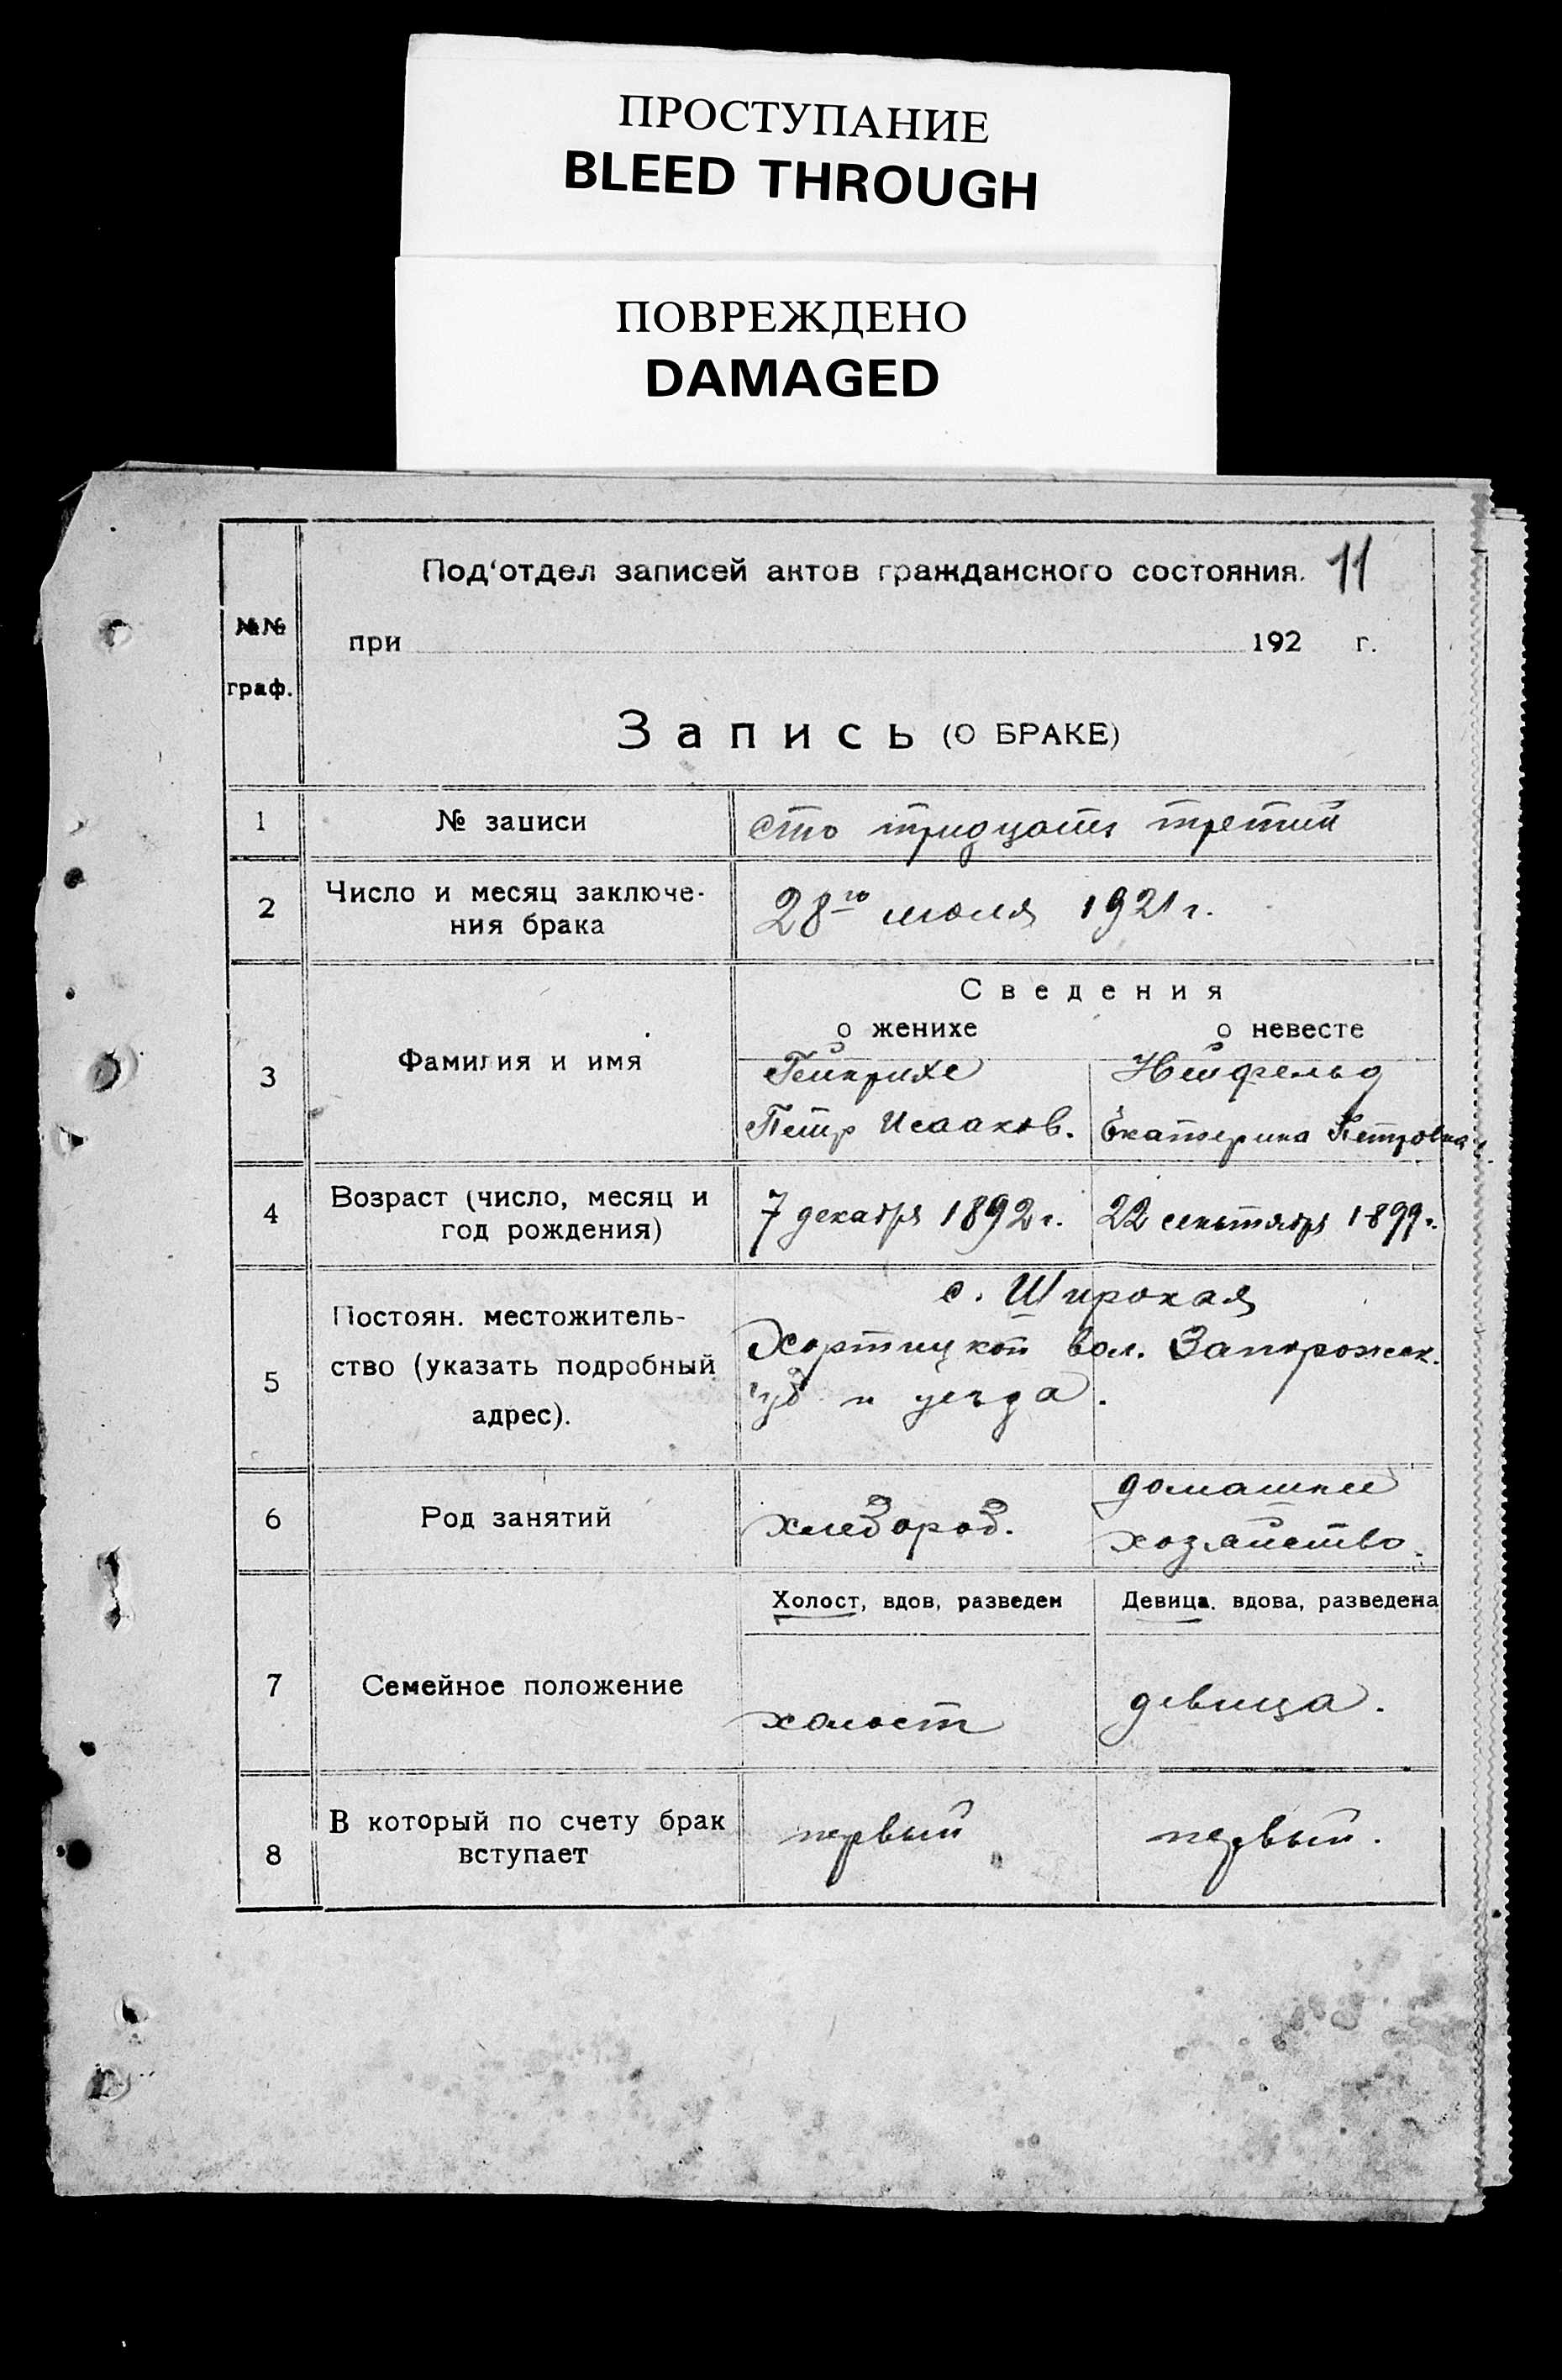 ПРОСТУПАНИЕ
BLEED THROUGH
ПОВРЕЖДЕНО
DAMAGED
Под'отдел записей актов гражданского состояния. 11
№№
граф.
при 192 г.
Запись (О БРАКЕ)
1 № записи сто тридцать третий
2 Число и месяц заключе-
ния брака
28го июля 1921 г.
Сведения
о женихе о невесте
3 Фамилия и имя
Гейнрихс Нейфельд
Петр Исааков. Екатерина Петровна
4 Возраст (число, месяц и
год рождения)
7 декабря 1892 г. 22 сентября 1899 г.
5 Постоян. местожитель-
ство (указать подробный
адрес).
с. Широкая
Хортицкой вол. Запорожск.
губ и уезда.
6 Род занятий
хлебороб. домашнее
хозяйство.
Холост, вдов, разведен Девица. вдова, разведена
7 Семейное положение
холост девица.
8 В который по счету брак
вступает
первый первый.